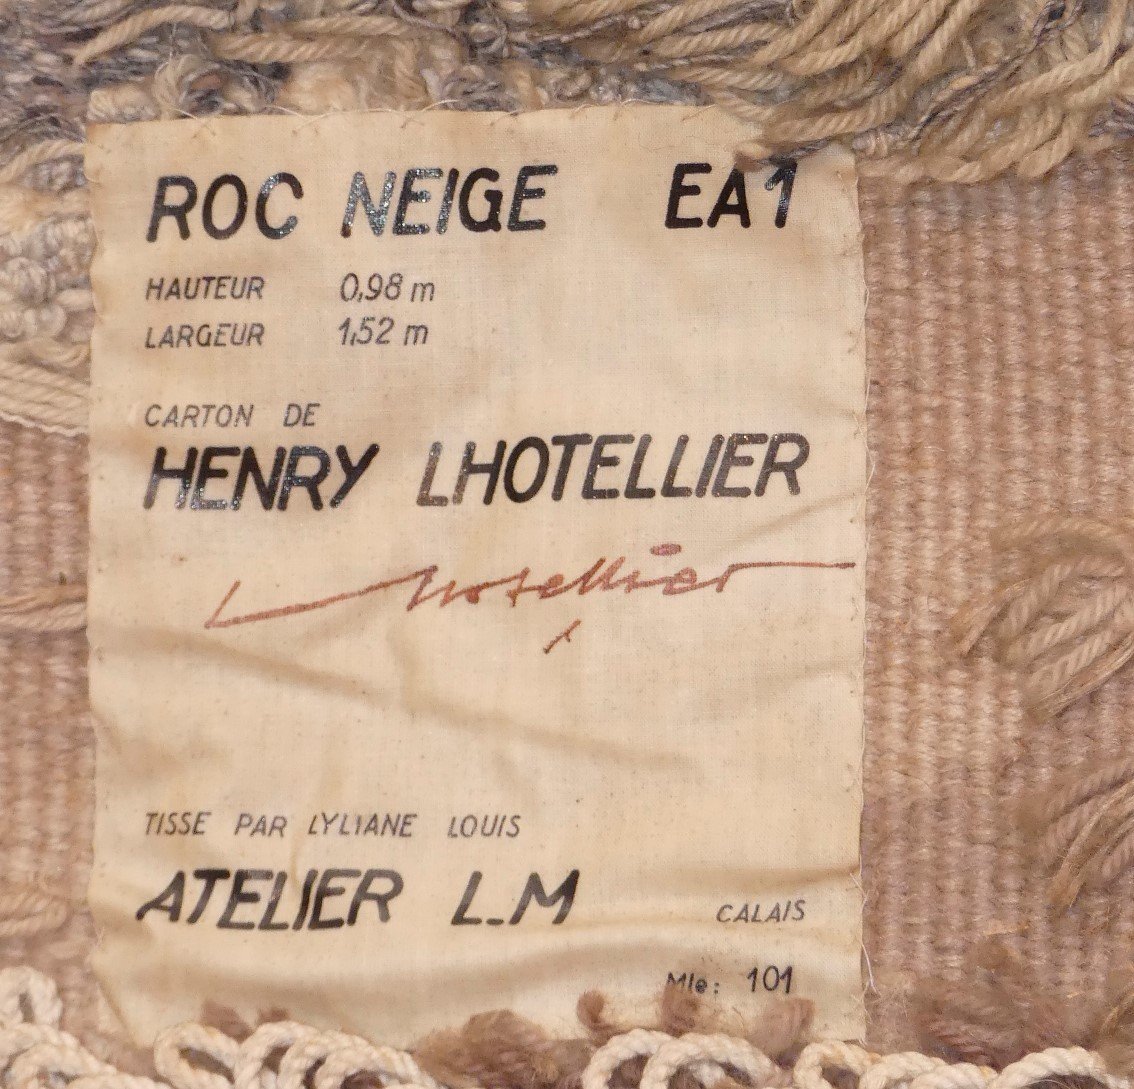 ROC NEIGE EA1
HAUTEUR 0,98 m
LARGEUR 1,52 m
CARTON DE
HENRY LHOTELLIER
Lhotellier
TISSE PAR LYLIANE LOUIS
ATELIER L_M CALAIS
Mle: 101